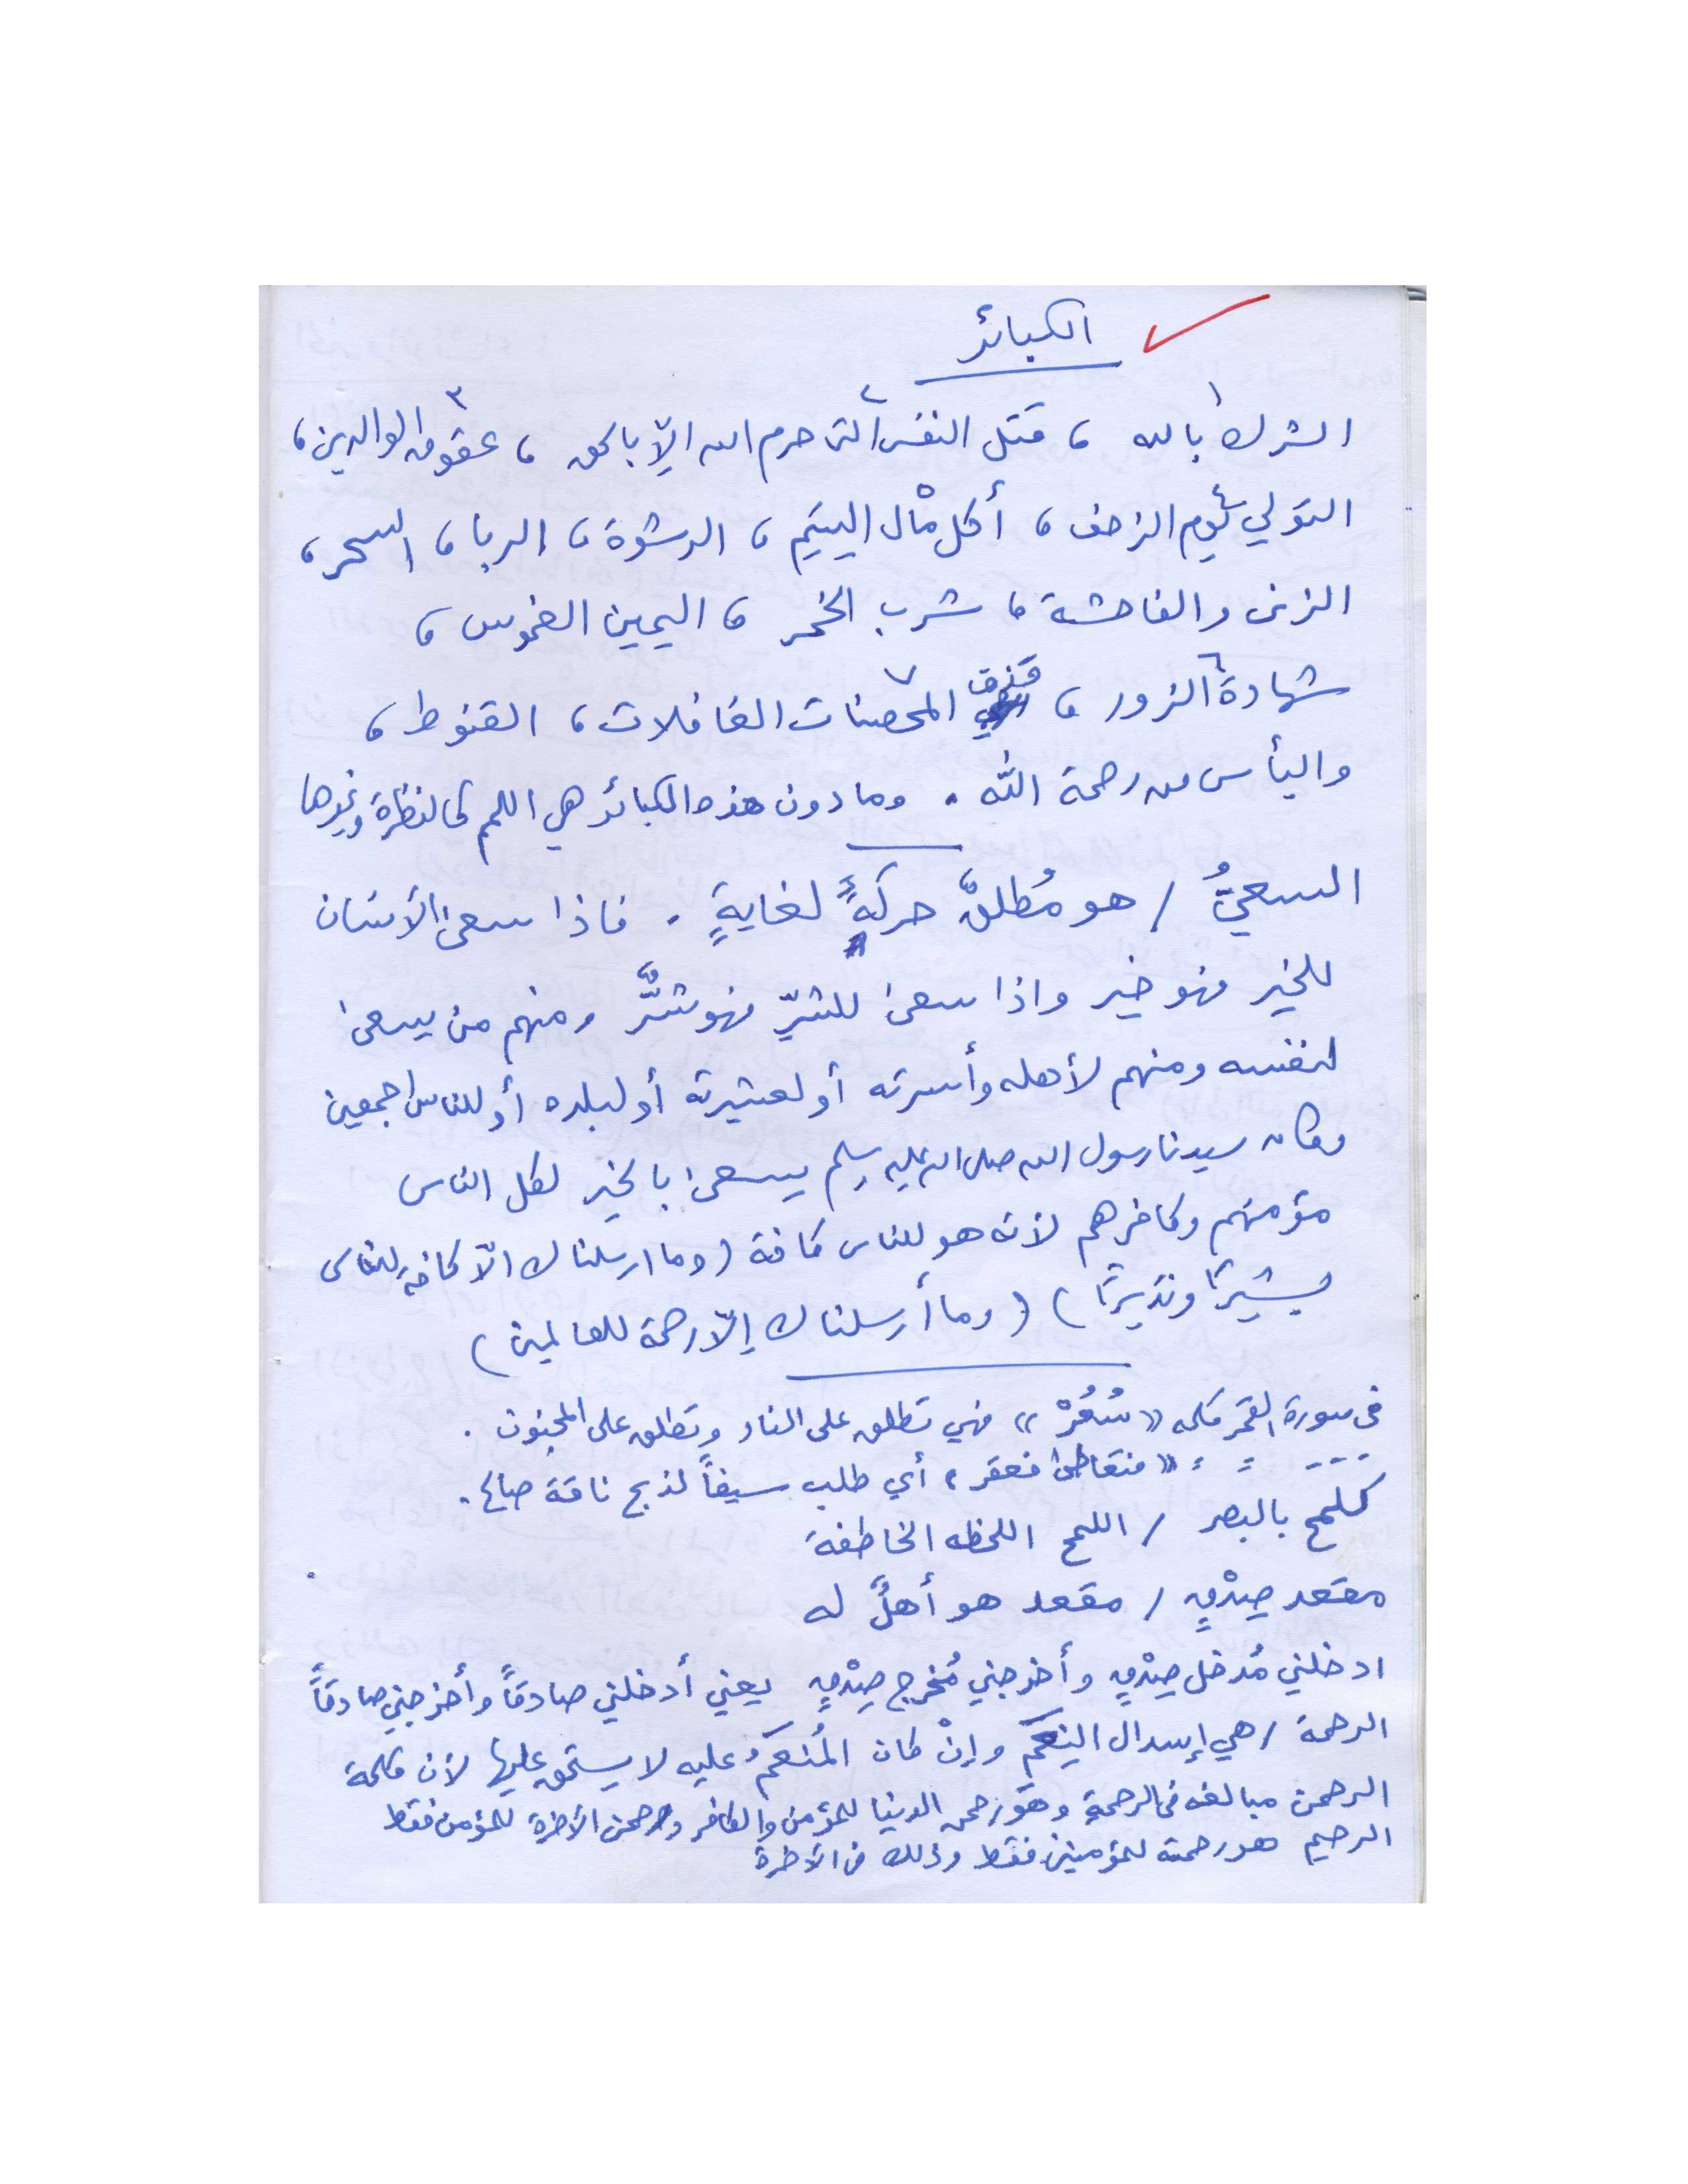 الكبائر
الشرك١ بالله ، قتل النفس٢ التي حرم الله إلّا بالحق ، عقوق٣ الوالدين ،
التولي٤ يوم الزحف ، أكل مال٥ اليتيم ، الرشوة ، الربا ، السحر ،
الزنى والفاحشة ، شرب الخمر ، اليمين الغموس ،
شهادة٦ الزور ، قذف٧ المحصنات الغافلات ، القنوط ،
واليأس من رحمة الله . وما دون هذه الكبائر هي اللمم كالنظرة وغيرها
السعيُ / هو مُطلق حركةٍ لغايةٍ . فاذا سعى الأنسان
للخير فهو خير واذا سعى للشرّ فهو شرٌّ ومنهم من يسعى
لنفسه ومنهم لأهله وأسرته أو لعشيرته أو لبلده أو للناس اجمعين
وكان سيدنا رسول الله صلى الله عليه وسلم يسعى بالخير لكل الناس
مؤمنهم وكافرهم لأنه هو للناس كافة (وما ارسلناك الّا كافة للناس
بشيرًا ونذيرًا) (وما أرسلناك إلّا رحمة للعالمين)
في سورة القمر كلمه «سُعُرْ» فهي تطلق على النار وتطلق على المجنون .
= = = «فتعاطى فعقر» أي طلب سيفاً لذبح ناقة صالح .
كلمح بالبصر / اللمح اللحظه الخاطفة
مقعد صِدْقٍ / مقعد هو أهلٌ له
ادخلني مُدخل صِدْقٍ وأخرجني مُخرج صِدْقٍ يعني أدخلني صادقاً وأخرجني صادقاً
الرحمة / هي إسدال النِعَم وإنْ كان المُنعَمُ عليه لا يستحق عليها لأن كلمة
الرحمن مبالغه في الرحمة وهو رحمن الدنيا للمؤمن والكافر ورحمن الآخرة للمؤمن فقط
الرحيم هو رحمة للمؤمنين فقط وذلك في الآخرة